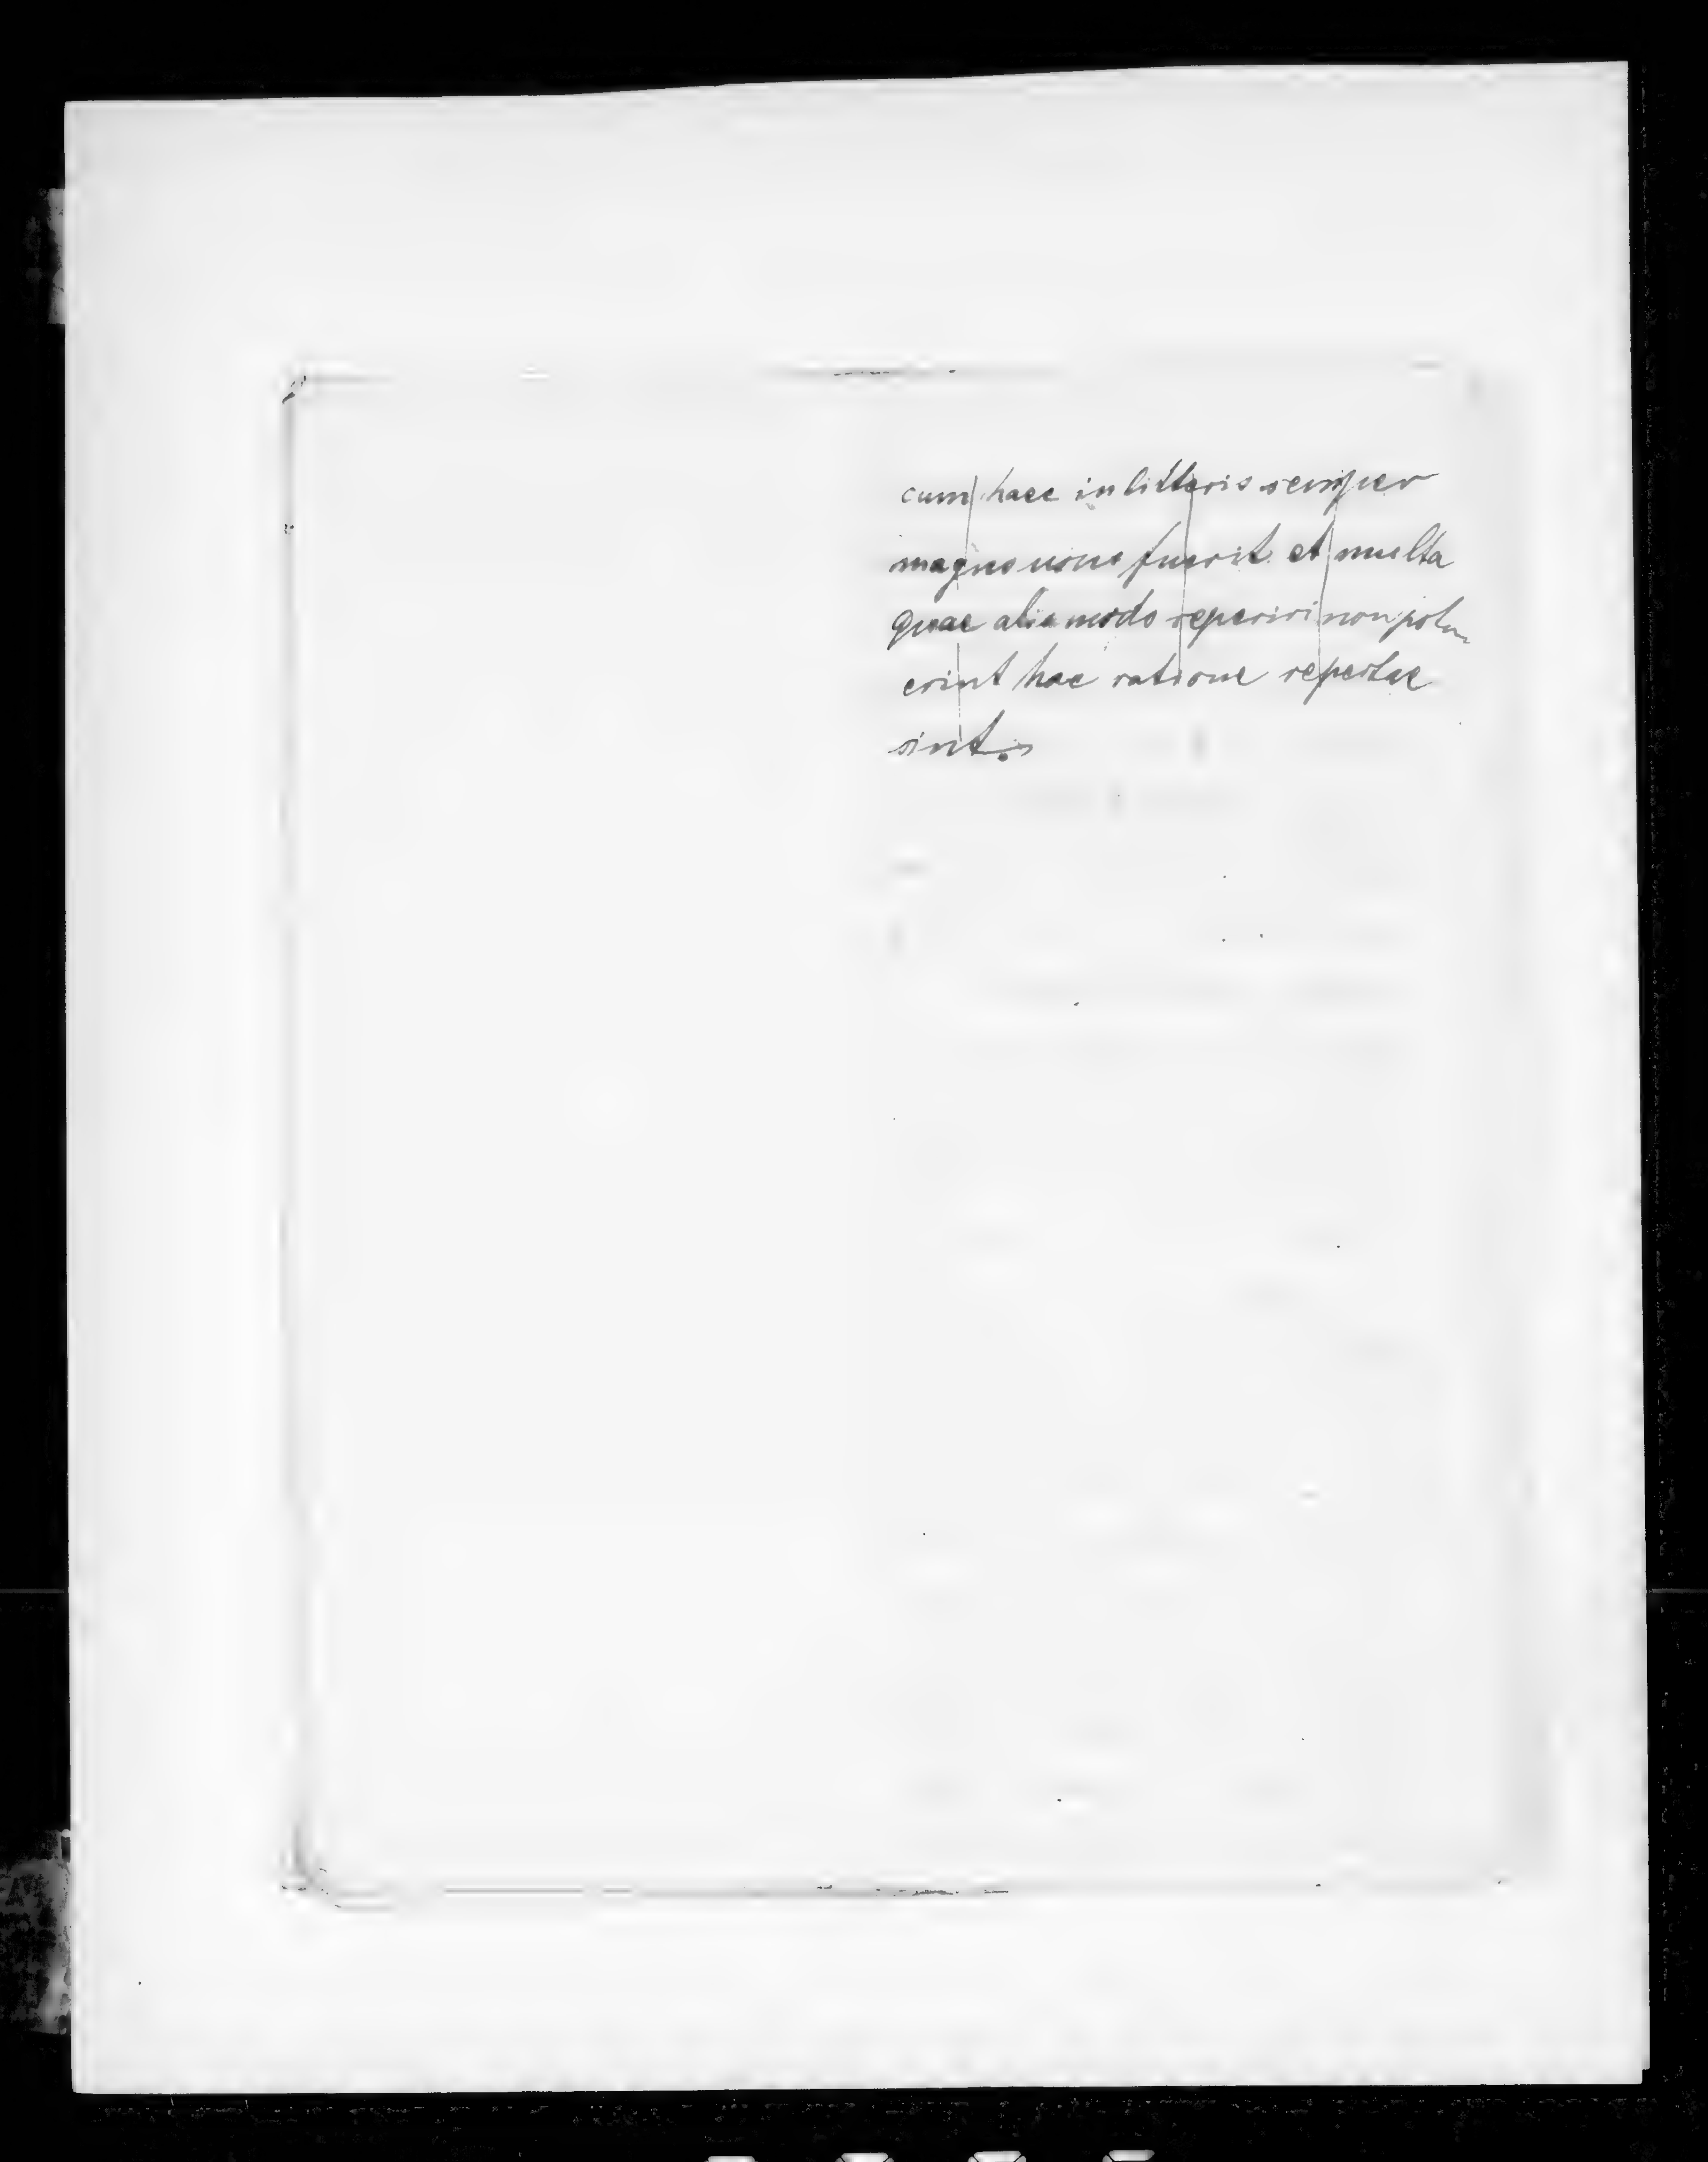 cum haec in litteris semper
magno usui fuerit et multa
quae alio modo reperiri non potu
erint hac ratione repertae
sint.